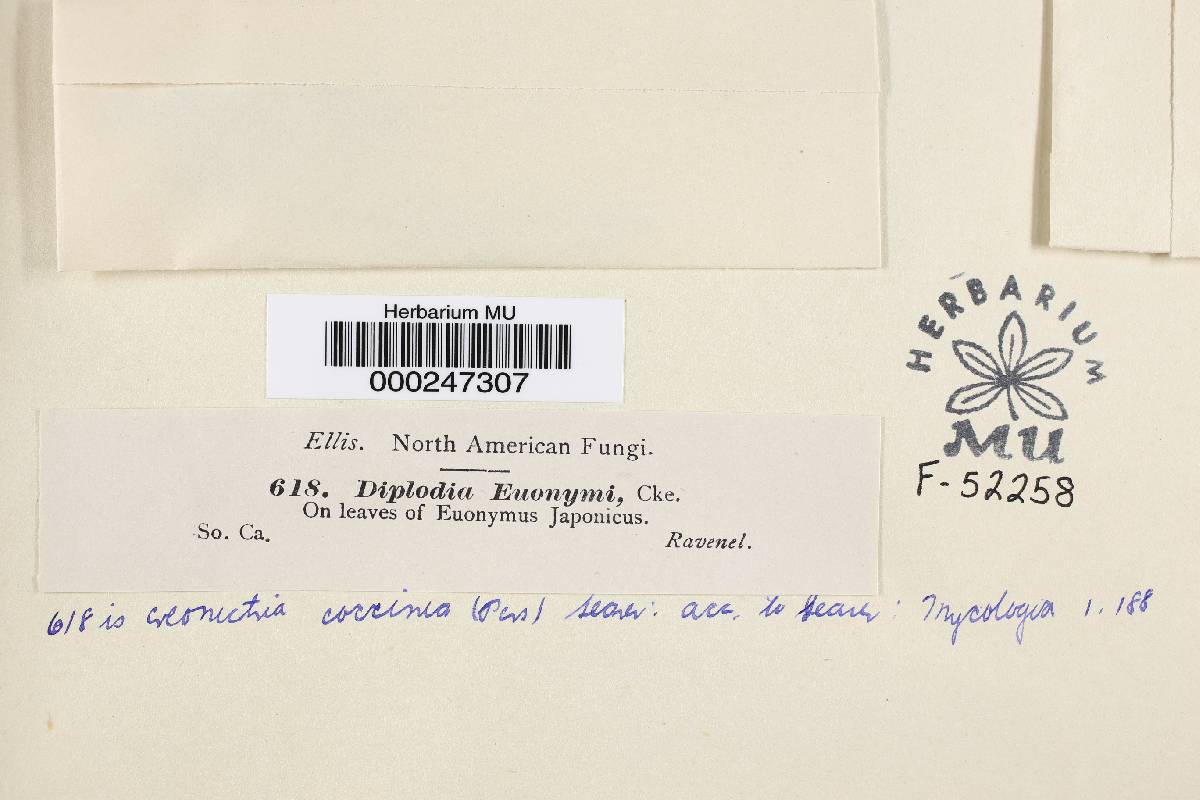 Herbarium MU
000247307
HERBARIUM
MU
F-52258
Ellis. North American Fungi.
618. Diplodia Euonymi, Cke.
On leaves of Euonymus Japonicus.
So. Ca. Ravenel.
618 is creonectria coccinea (Pers) Seaver: acc. to Seaver: Mycologia 1. 188